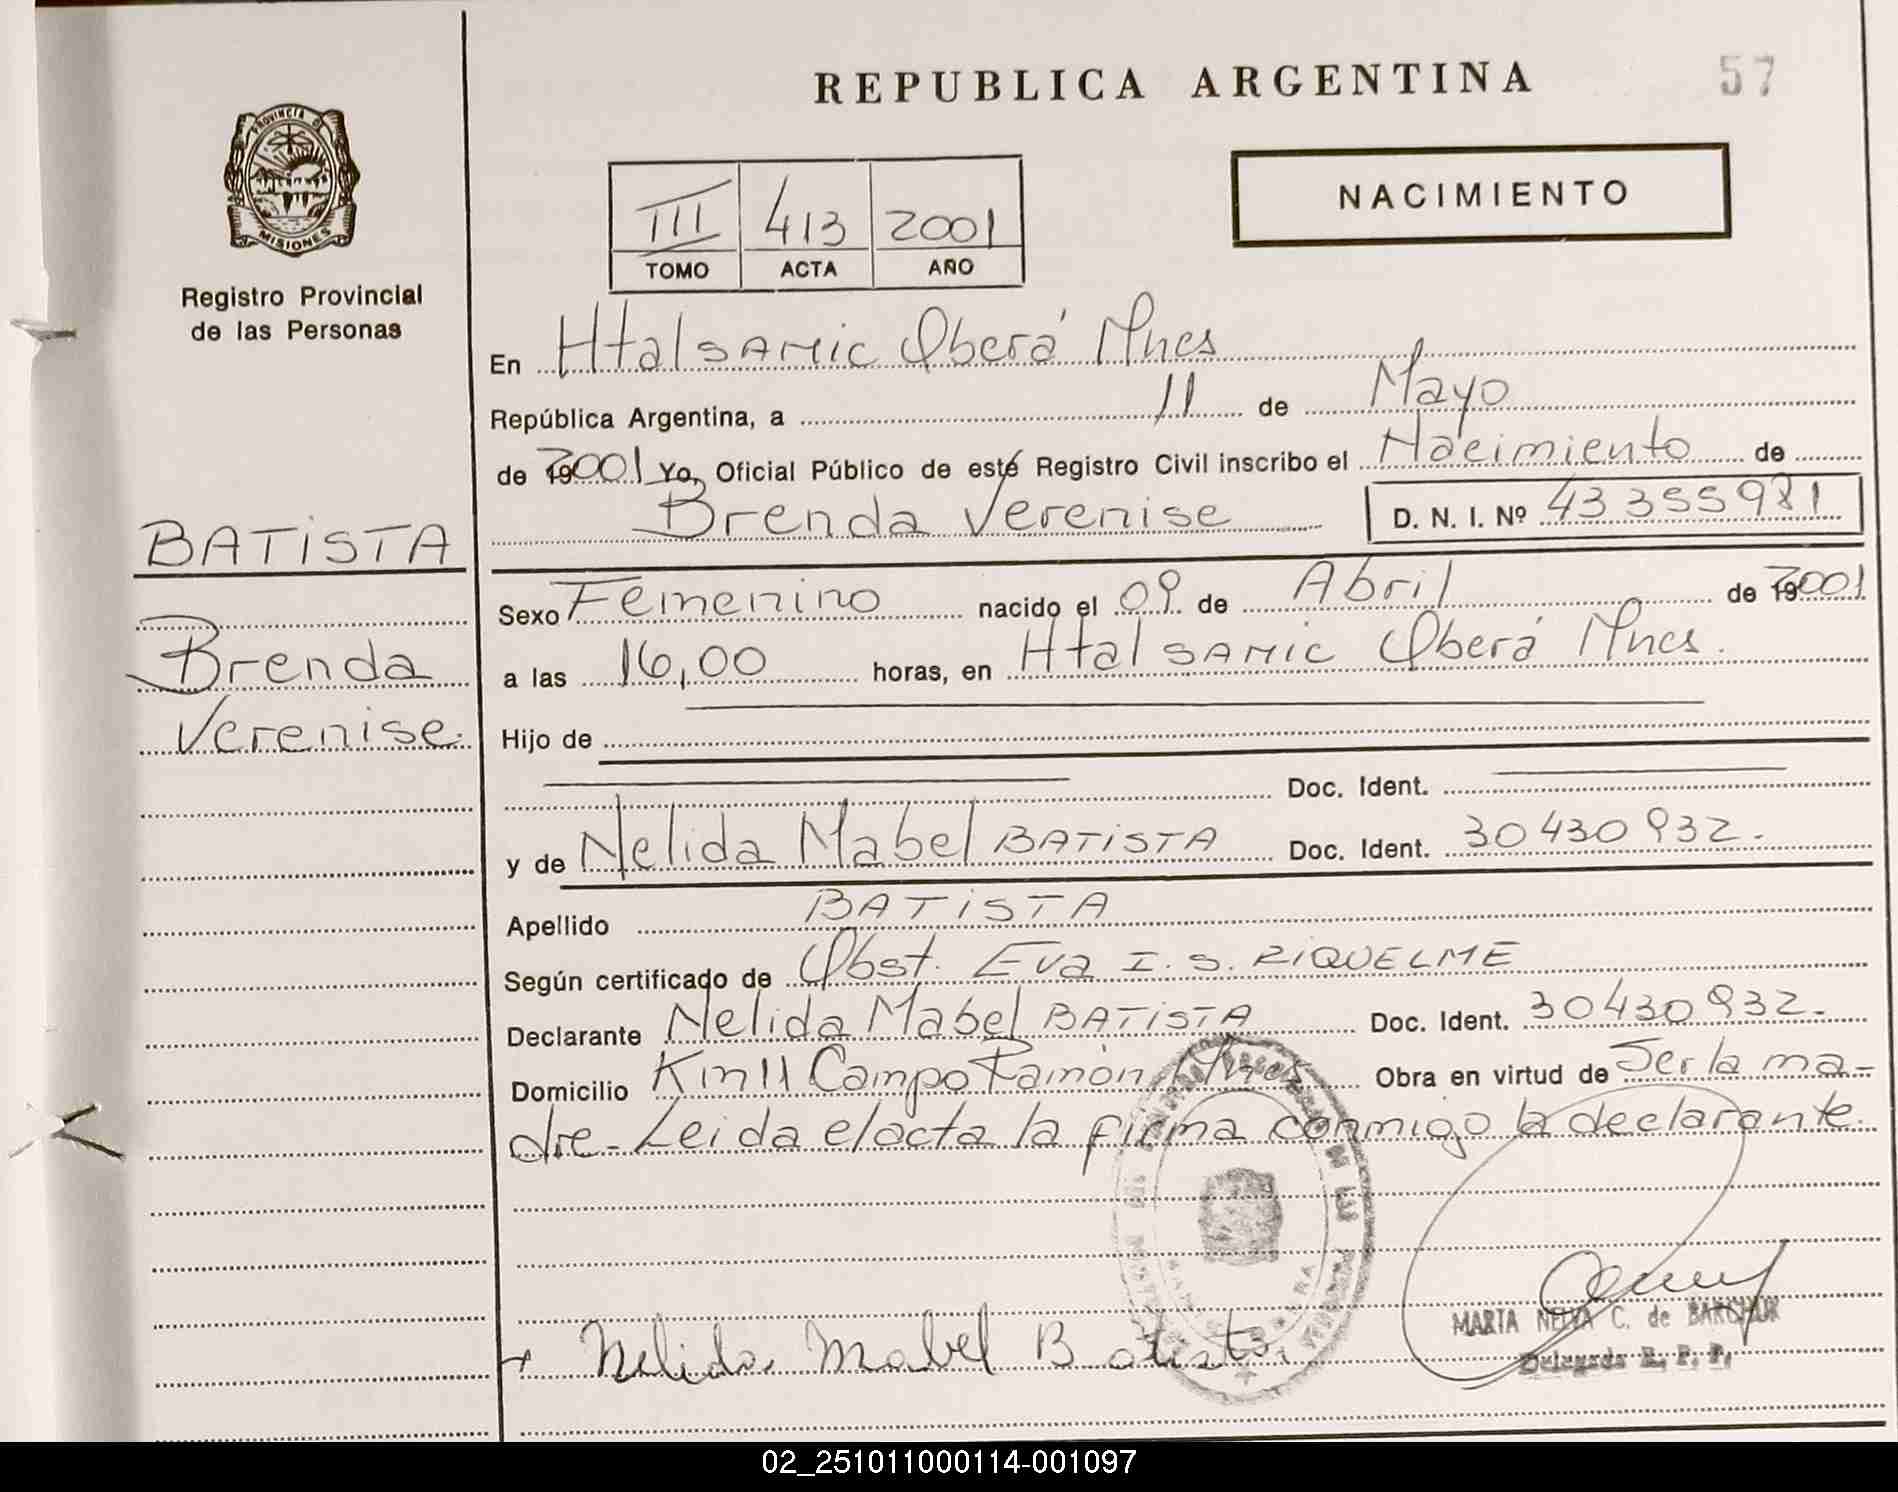 REPUBLICA ARGENTINA
57
PROVINCIA DE
MISIONES
Registro Provincial
de las Personas
NACIMIENTO
III 413 2001
TOMO ACTA AÑO
En Htal SAMIC Oberá Mnes
República Argentina, a 11 de Mayo
de 2001 Yo, Oficial Público de esté Registro Civil inscribo el Nacimiento de
Brenda Verenise D. N. I. Nº 43 355 981
BATISTA
Brenda
Verenise.
Sexo Femenino nacido el 09 de Abril de 2001
a las 16,00 horas, en Htal SAMIC Oberá Mnes.
Hijo de
Doc. Ident.
y de Nelida Mabel BATISTA Doc. Ident. 30430932.
Apellido BATISTA
Según certificado de Obst. Eva I. S. RIQUELME
Declarante Nelida Mabel BATISTA Doc. Ident. 30430932.
Domicilio Km 11 Campo Ramón Mnes Obra en virtud de Ser la ma-
dre- Leida el acta la firma conmigo la declarante.
Nelida Mabel Batista
MARIA NELVA C. de
Delegada R. P. P.
02_251011000114-001097